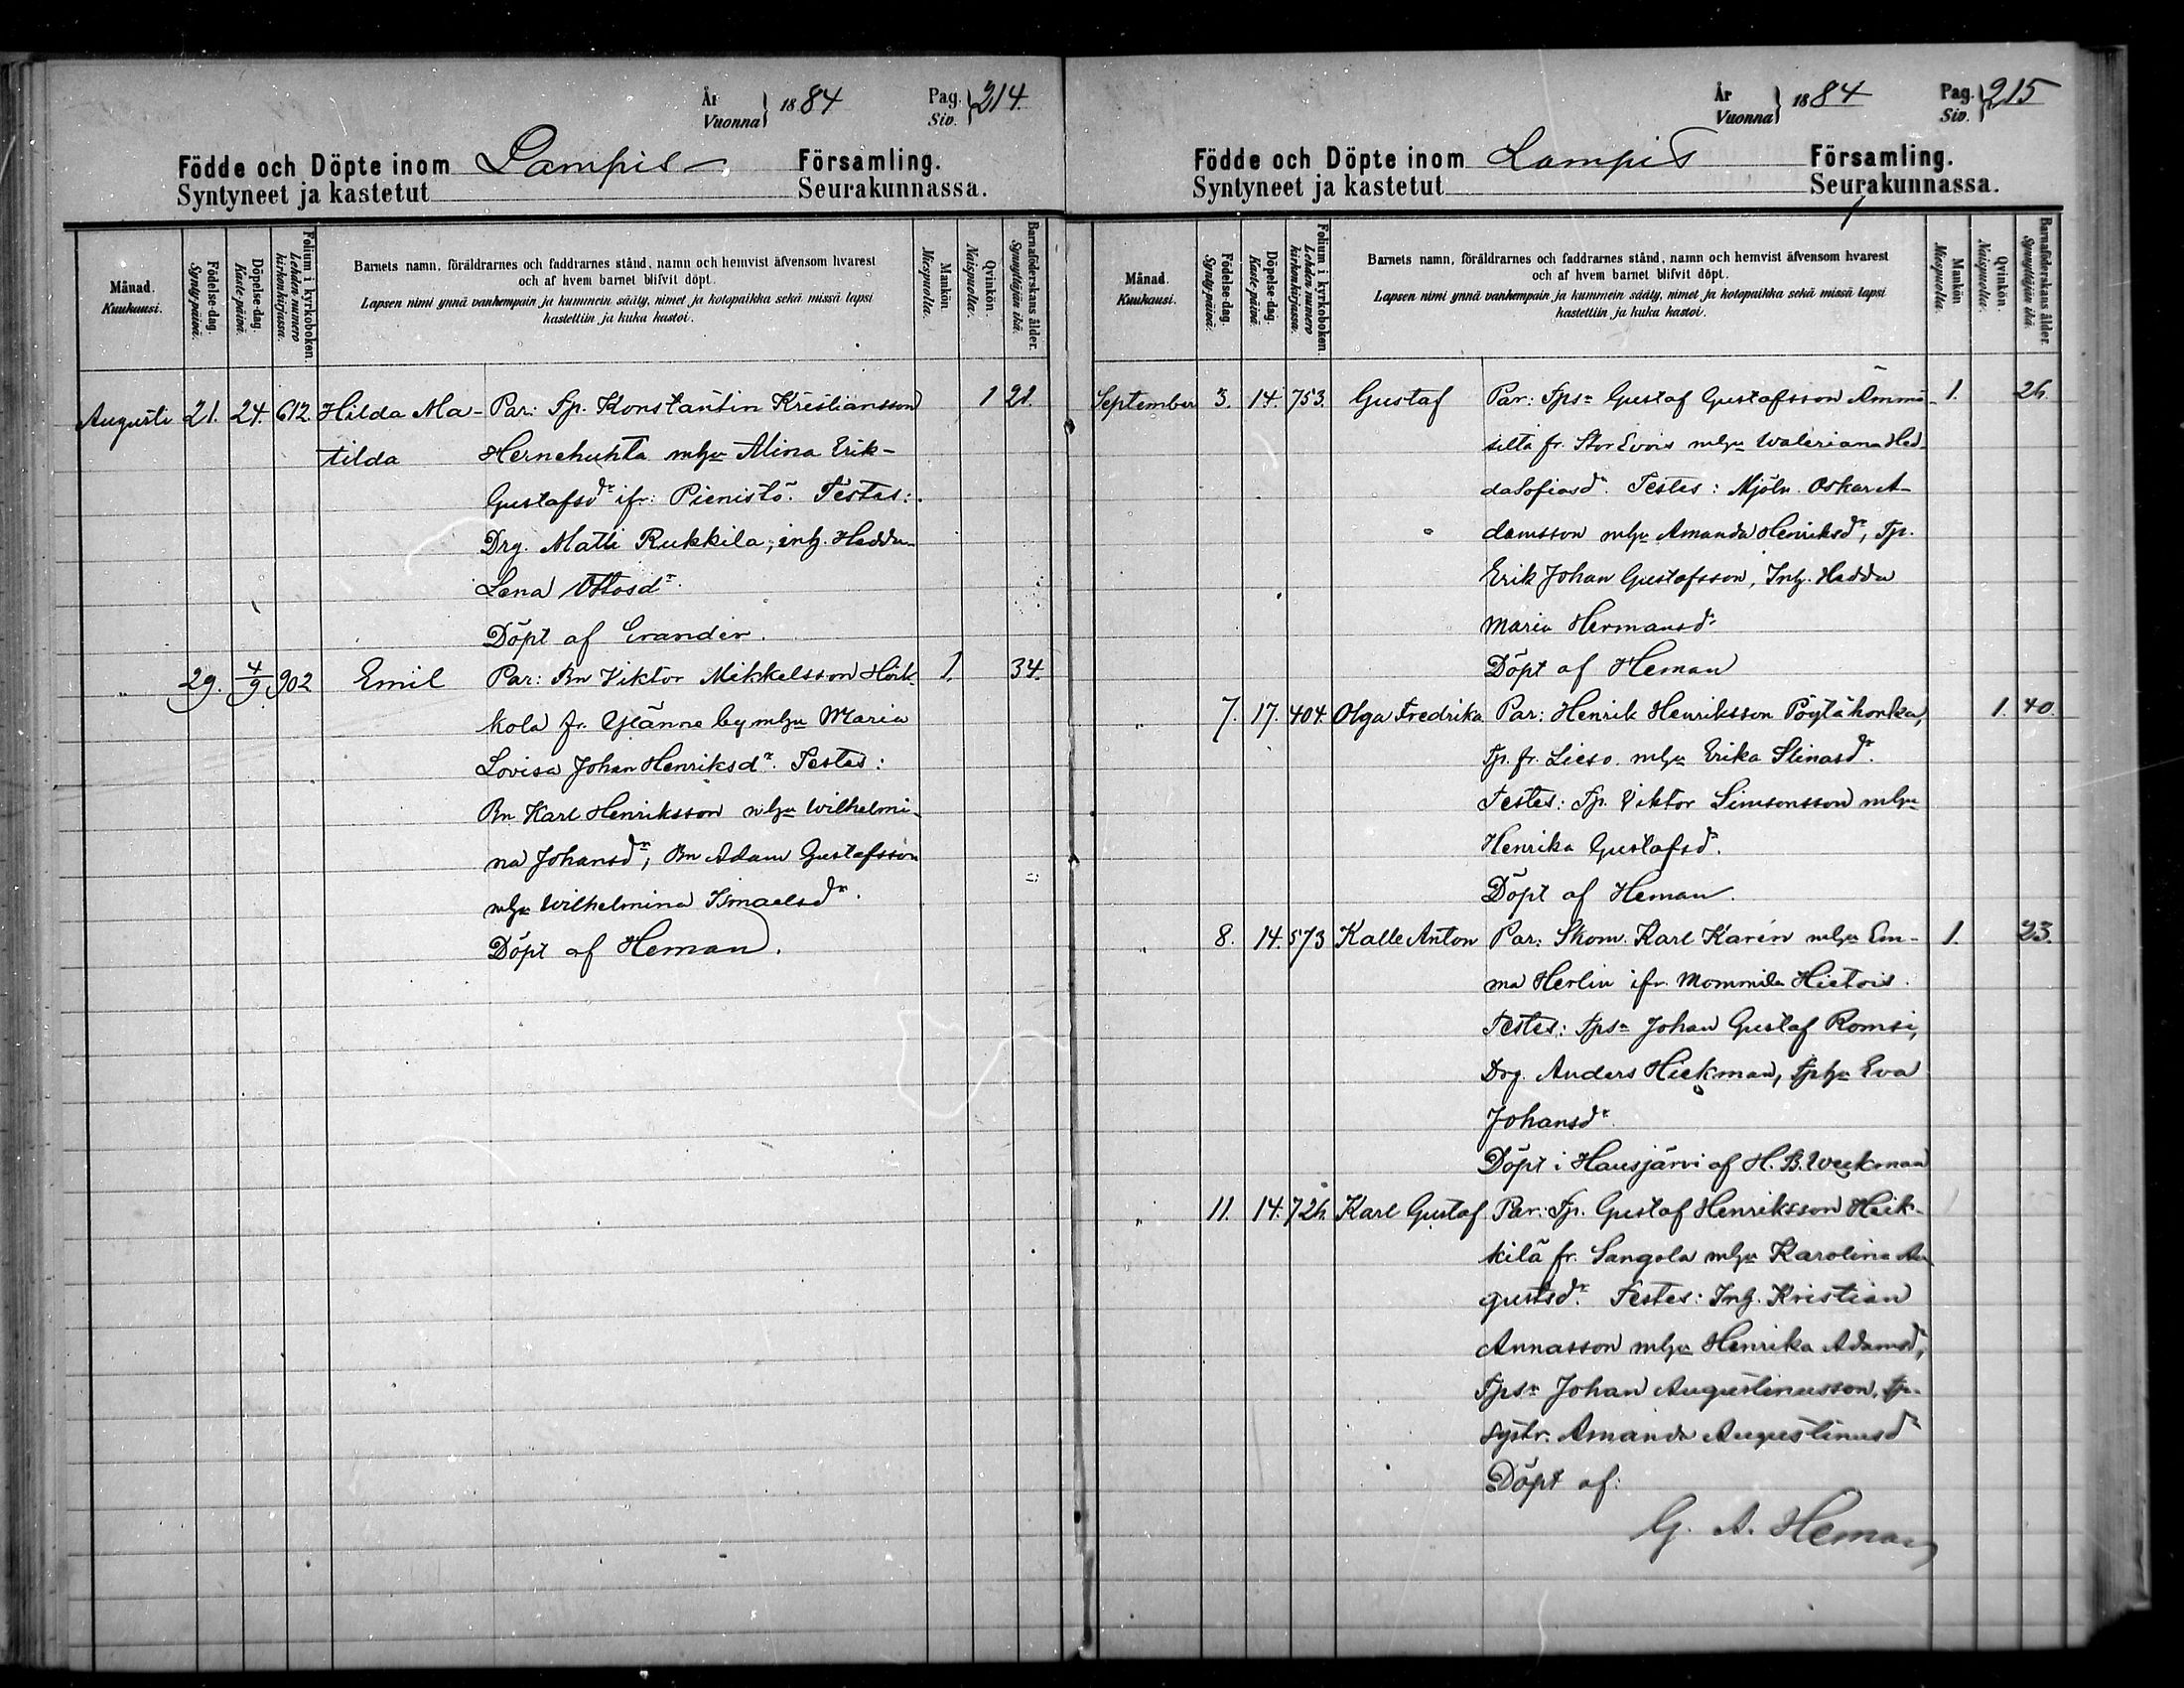 År
Vuonna } 1884 Pag.
Siv. } 214.
Födde och Döpte inom Lampis Församling.
Syntyneet ja kastetut Seurakunnassa.
Månad.
Kuukausi.
Födelse-dag.
Synty-päivä.
Döpelse-dag.
Kaste-päivä.
Folium i kyrkoboken.
Lehden numero
kirkonkirjassa.
Barnets namn, föräldrarnes och faddrarnes stånd, namn och hemvist äfvensom hvarest
och af hvem barnet blifvit döpt.
Lapsen nimi ynnä vanhempain ja kummein sääty, nimet ja kotopaikka sekä missä lapsi
kastettiin ja kuka kastoi.
Mankön
Miespuolia.
Qvinkön.
Naispuolia.
Barnaföderskans ålder.
Synnyttäjän ikä.
Augusti 21. 24. 612 Hilda Ma- Par: Tp. Konstantin Kristiansson 1 21.
tilda Hernehuhta mhu Mina Erik-
Gustafsdr ifr: Pienistö. Testes:
Drg. Matti Rukkila, inh. Hedda
Lena Ottosdr.
Döpt af Grander.
" 29. 4/9 902 Emil Par: Bn Viktor Mikkelsson Hörk- 1. 34.
kola fr. Yjänne by mhu Maria
Lovisa Johan Henriksdr. Testes:
Bn Karl Henriksson mhu Wilhelmi-
na Johansdr, Bn Adam Gustafsson
mhu Wilhelmina Ismaelsdr.
Döpt af Heman.
År
Vuonna } 1884 Pag.
Siv. } 215
Födde och Döpte inom Lampis Församling.
Syntyneet ja kastetut Seurakunnassa.
Månad.
Kuukausi.
Födelse-dag.
Synty-päivä.
Döpelse-dag.
Kaste-päivä.
Folium i kyrkoboken.
Lehden numero
kirkonkirjassa.
Barnets namn, föräldrarnes och faddrarnes stånd, namn och hemvist äfvensom hvarest
och af hvem barnet blifvit döpt.
Lapsen nimi ynnä vanhempain ja kummein sääty, nimet ja kotopaikka sekä missä lapsi
kastettiin ja kuka kastoi.
Mankön
Miespuolia.
Qvinkön.
Naispuolia.
Barnaföderskans ålder.
Synnyttäjän ikä.
September 3. 14. 753. Gustaf Par: Tpsn Gustaf Gustafsson Ämmä- 1. 26.
siltä fr. Stor Evois mhu Waleriana Hed-
da Sofiasdr. Testes: Mjöln. Oskar A-
damsson mhu Amanda Henriksdr, Tp.
Erik Johan Gustafsson, Inh. Hedda
Maria Hermansdr
Döpt af Heman
" 7. 17. 404. Olga Fredrika Par: Henrik Henriksson Pöytähonka, 1. 40.
Tp. fr. Lieso. mhu Erika Stinasdr.
Testes: Tp. Viktor Simsonsson mhu
Henrika Gustafsdr.
Döpt af Heman.
" 8. 14. 573 Kalle Anton Par: Skom. Karl Karén mhu Em- 1. 23.
ma Herlin ifr. Mommila Hietois.
Testes: Tpsn Johan Gustaf Romsi,
Drg. Anders Hickman, Tphu Eva
Johansdr.
Döpt i Hausjärvi af H. B. Weckman
" 11. 14. 726. Karl Gustaf Par: Tp. Gustaf Henriksson Heik-
kilä fr. Sangola mhu Karolina Au
gustsdr. Testes: Inh. Kristian
Annasson mhu Henrika Adamsdr,
Tpsn Johan Augustinusson, tp.
systr. Amanda Augustinusdr
Döpt af:
G. A. Heman